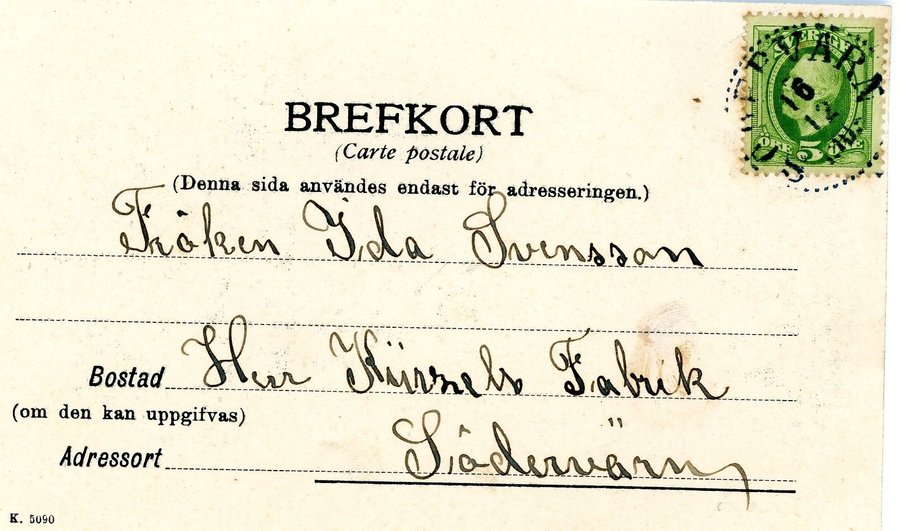 SVERIGE
ÖRE 5 ÖRE
SÖDERVÄRN
16
12
BREFKORT
(Carte postale)
(Denna sida användes endast för adresseringen.)
Fröken Ida Svensson
Bostad Herr Kürzels Fabrik
(om den kan uppgifvas)
Adressort Södervärn
K. 5090